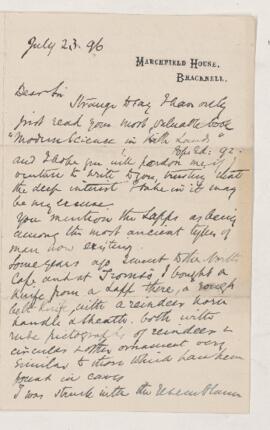 July 23. 96
MARCHFIELD HOUSE,
BRACKNELL.
Dear Sir
Strange to say I have only
just read your most valuable book
"Modern Science in Bible Lands"
Ed: 92.
and I hope you will pardon me if I
venture to write to you, trusting that
the deep interest I take in it may
be my excuse.
You mention the Lapps as being
among the most ancient types of
man now existing.
Some years ago I went to the North
Cape and at Tromsö I bought a
knife from a Lapp there, a rough
belt knife with a reindeer horn
handle & sheath. both with
rude pictographs of reindeer &
circular & other ornament very
similar to those which have been
found in caves
I was struck with the